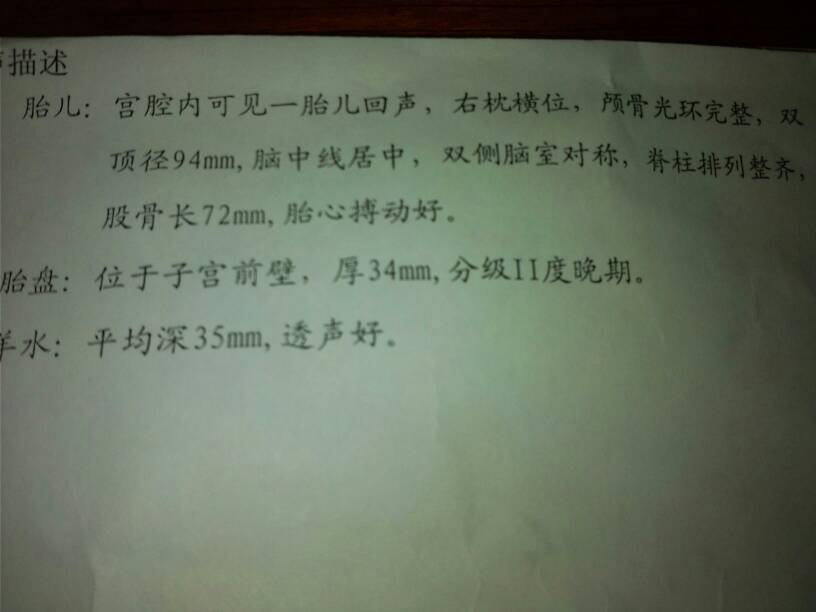 声描述
胎儿：宫腔内可见一胎儿回声，右枕横位，颅骨光环完整，双
顶径94mm,脑中线居中，双侧脑室对称，脊柱排列整齐，
股骨长72mm,胎心搏动好。
胎盘：位于子宫前壁，厚34mm,分级II度晚期。
羊水：平均深35mm,透声好。